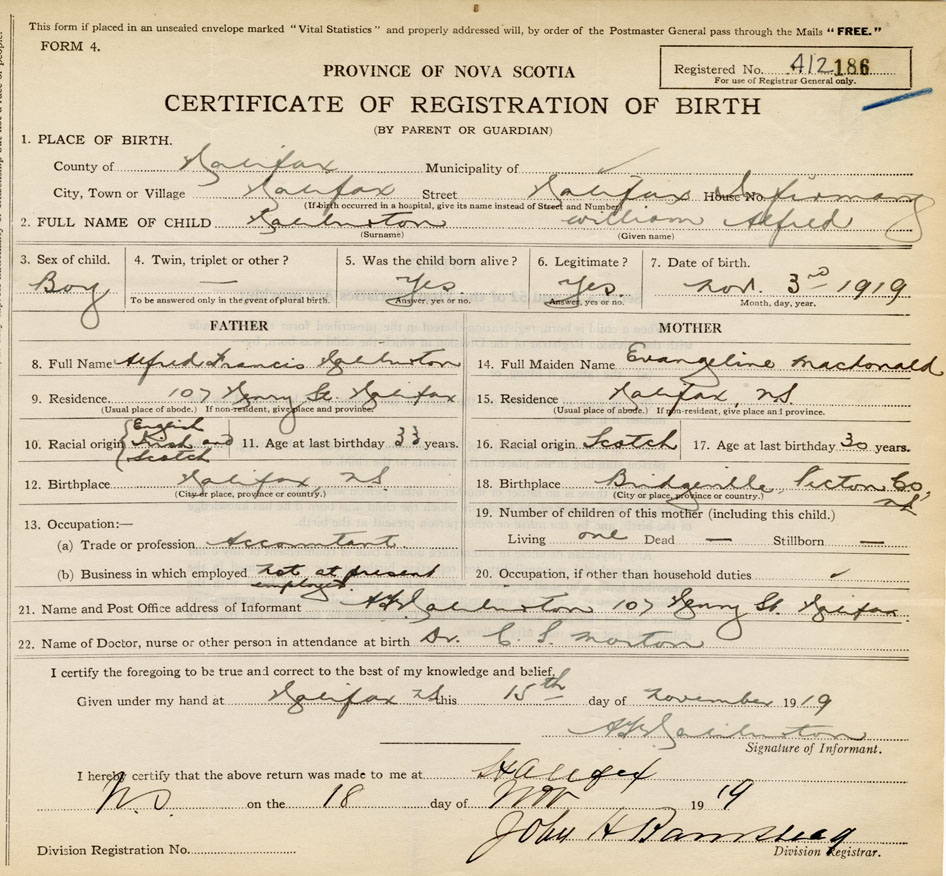 This form if placed in an unsealed envelope marked "Vital Statistics" and properly addressed will, by order of the Postmaster General pass through the Mails "FREE."
FORM 4.
Registered No. 412186
For use of Registrar General only.
PROVINCE OF NOVA SCOTIA
CERTIFICATE OF REGISTRATION OF BIRTH
(BY PARENT OR GUARDIAN)
1. PLACE OF BIRTH.
County of Halifax Municipality of
City, Town or Village Halifax Street Halifax House No. Infirmary
(If birth occurred in a hospital, give its name instead of Street and Number)
2. FULL NAME OF CHILD William Alfred
(Surname) (Given name)
3. Sex of child. 4. Twin, triplet or other? 5. Was the child born alive? 6. Legitimate? 7. Date of birth.
Boy — Yes Yes. Nov. 3rd 1919
To be answered only in the event of plural birth. Answer, yes or no. Answer, yes or no. Month, day, year.
FATHER MOTHER
8. Full Name Alfred Francis 14. Full Maiden Name Evangeline Macdonald
9. Residence. 107 Henry St. Halifax 15. Residence Halifax, N.S.
(Usual place of abode.) If non-resident, give place and province. (Usual place of abode.) If non-resident, give place and province.
10. Racial origin English Irish and Scotch 11. Age at last birthday 33 years. 16. Racial origin Scotch 17. Age at last birthday 30 years.
12. Birthplace Halifax, N.S. 18. Birthplace Bridgeville, Pictou Co, N.S.
(City or place, province or country.) (City or place, province or country.)
19. Number of children of this mother (including this child.)
13. Occupation:—
(a) Trade or profession Accountant Living one Dead — Stillborn —
(b) Business in which employed not at present employed. 20. Occupation, if other than household duties
21. Name and Post Office address of Informant 107 Henry St. Halifax
22. Name of Doctor, nurse or other person in attendance at birth Dr. C. S. Morton
I certify the foregoing to be true and correct to the best of my knowledge and belief.
Given under my hand at Halifax N.S. this 15th day of November 1919
Signature of Informant.
I hereby certify that the above return was made to me at Halifax
N.S. on the 18 day of Nov 1919
John H
Division Registration No. Division Registrar.